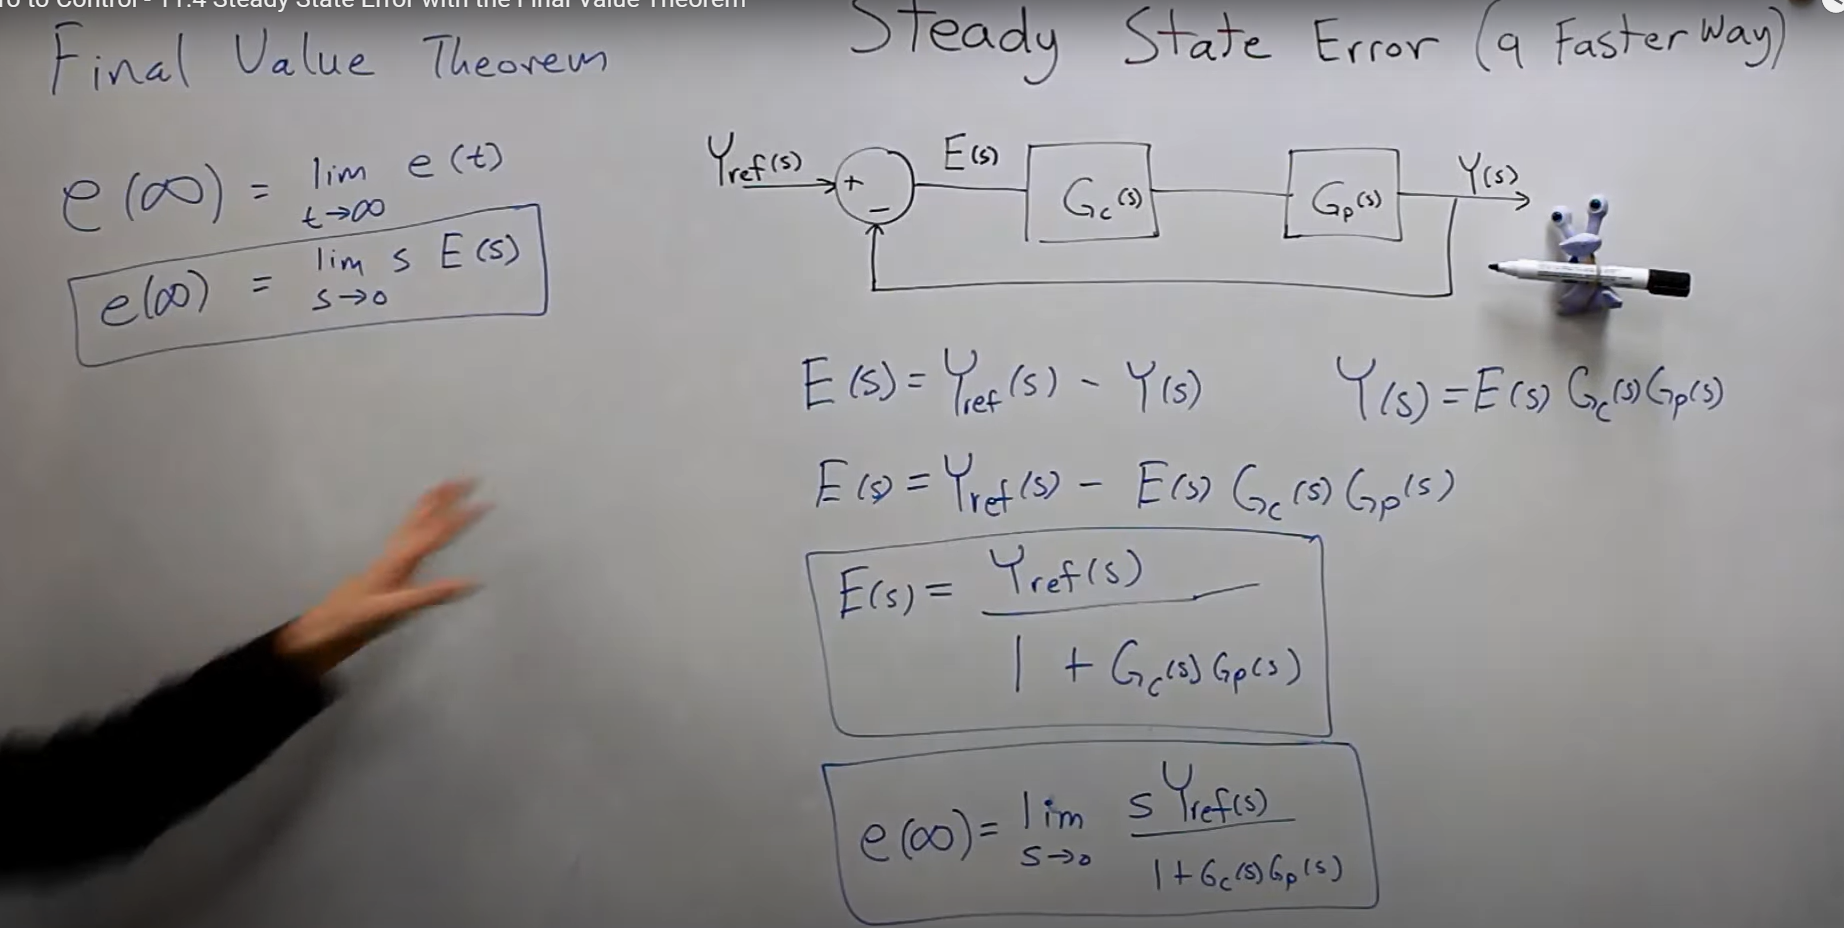 ro to Control - 11.4 Steady State Error with the Final Value Theorem
Final Value Theorem
e(∞) = lim e(t)
t→∞
e(∞) = lim s E(s)
s→0
Steady State Error (a Faster Way)
Yref(s) + − E(s) Gc(s) Gp(s) Y(s)
E(s) = Yref(s) - Y(s) Y(s) = E(s) Gc(s) Gp(s)
E(s) = Yref(s) - E(s) Gc(s) Gp(s)
E(s) = Yref(s)
1 + Gc(s) Gp(s)
e(∞) = lim s Yref(s)
s→0 1 + Gc(s) Gp(s)